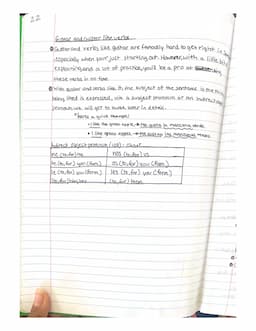 22
Gustar and gustar like verbs...
Gustar and verbs like gustar are famously hard to get right
especially when your just starting out. However, with a little bit of
explaining and a lot of practice, you'll be a pro at using
these verbs in no time.
With gustar and verbs like it, the subject of the sentence is the thing
being liked is expressed, via a subject pronoun or an indirect object
pronoun. We will get to much later in detail.
*here's a quick example!
I like the green apple. → me gusta la manzana verde.
I like green apples. → me gustan las manzanas verdes.
Indirect object pronouns (IOP) chart
me (to, for) me
nos (to, for) us
te (to, for) you (fam.)
os (to, for) you (fam.)
le (to, for) you (form.)
les (to, for) you (form.)
(to, for) him, her
(to, for) them